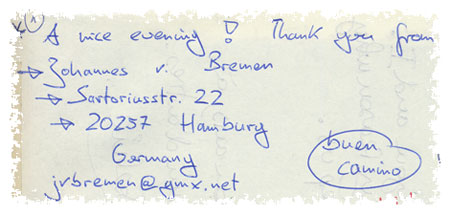 A nice evening! Thank you from
→ Johannes v. Bremen
→ Sartoriusstr. 22
→ 20257 Hamburg
Germany
jvbremen@gmx.net
buen
camino